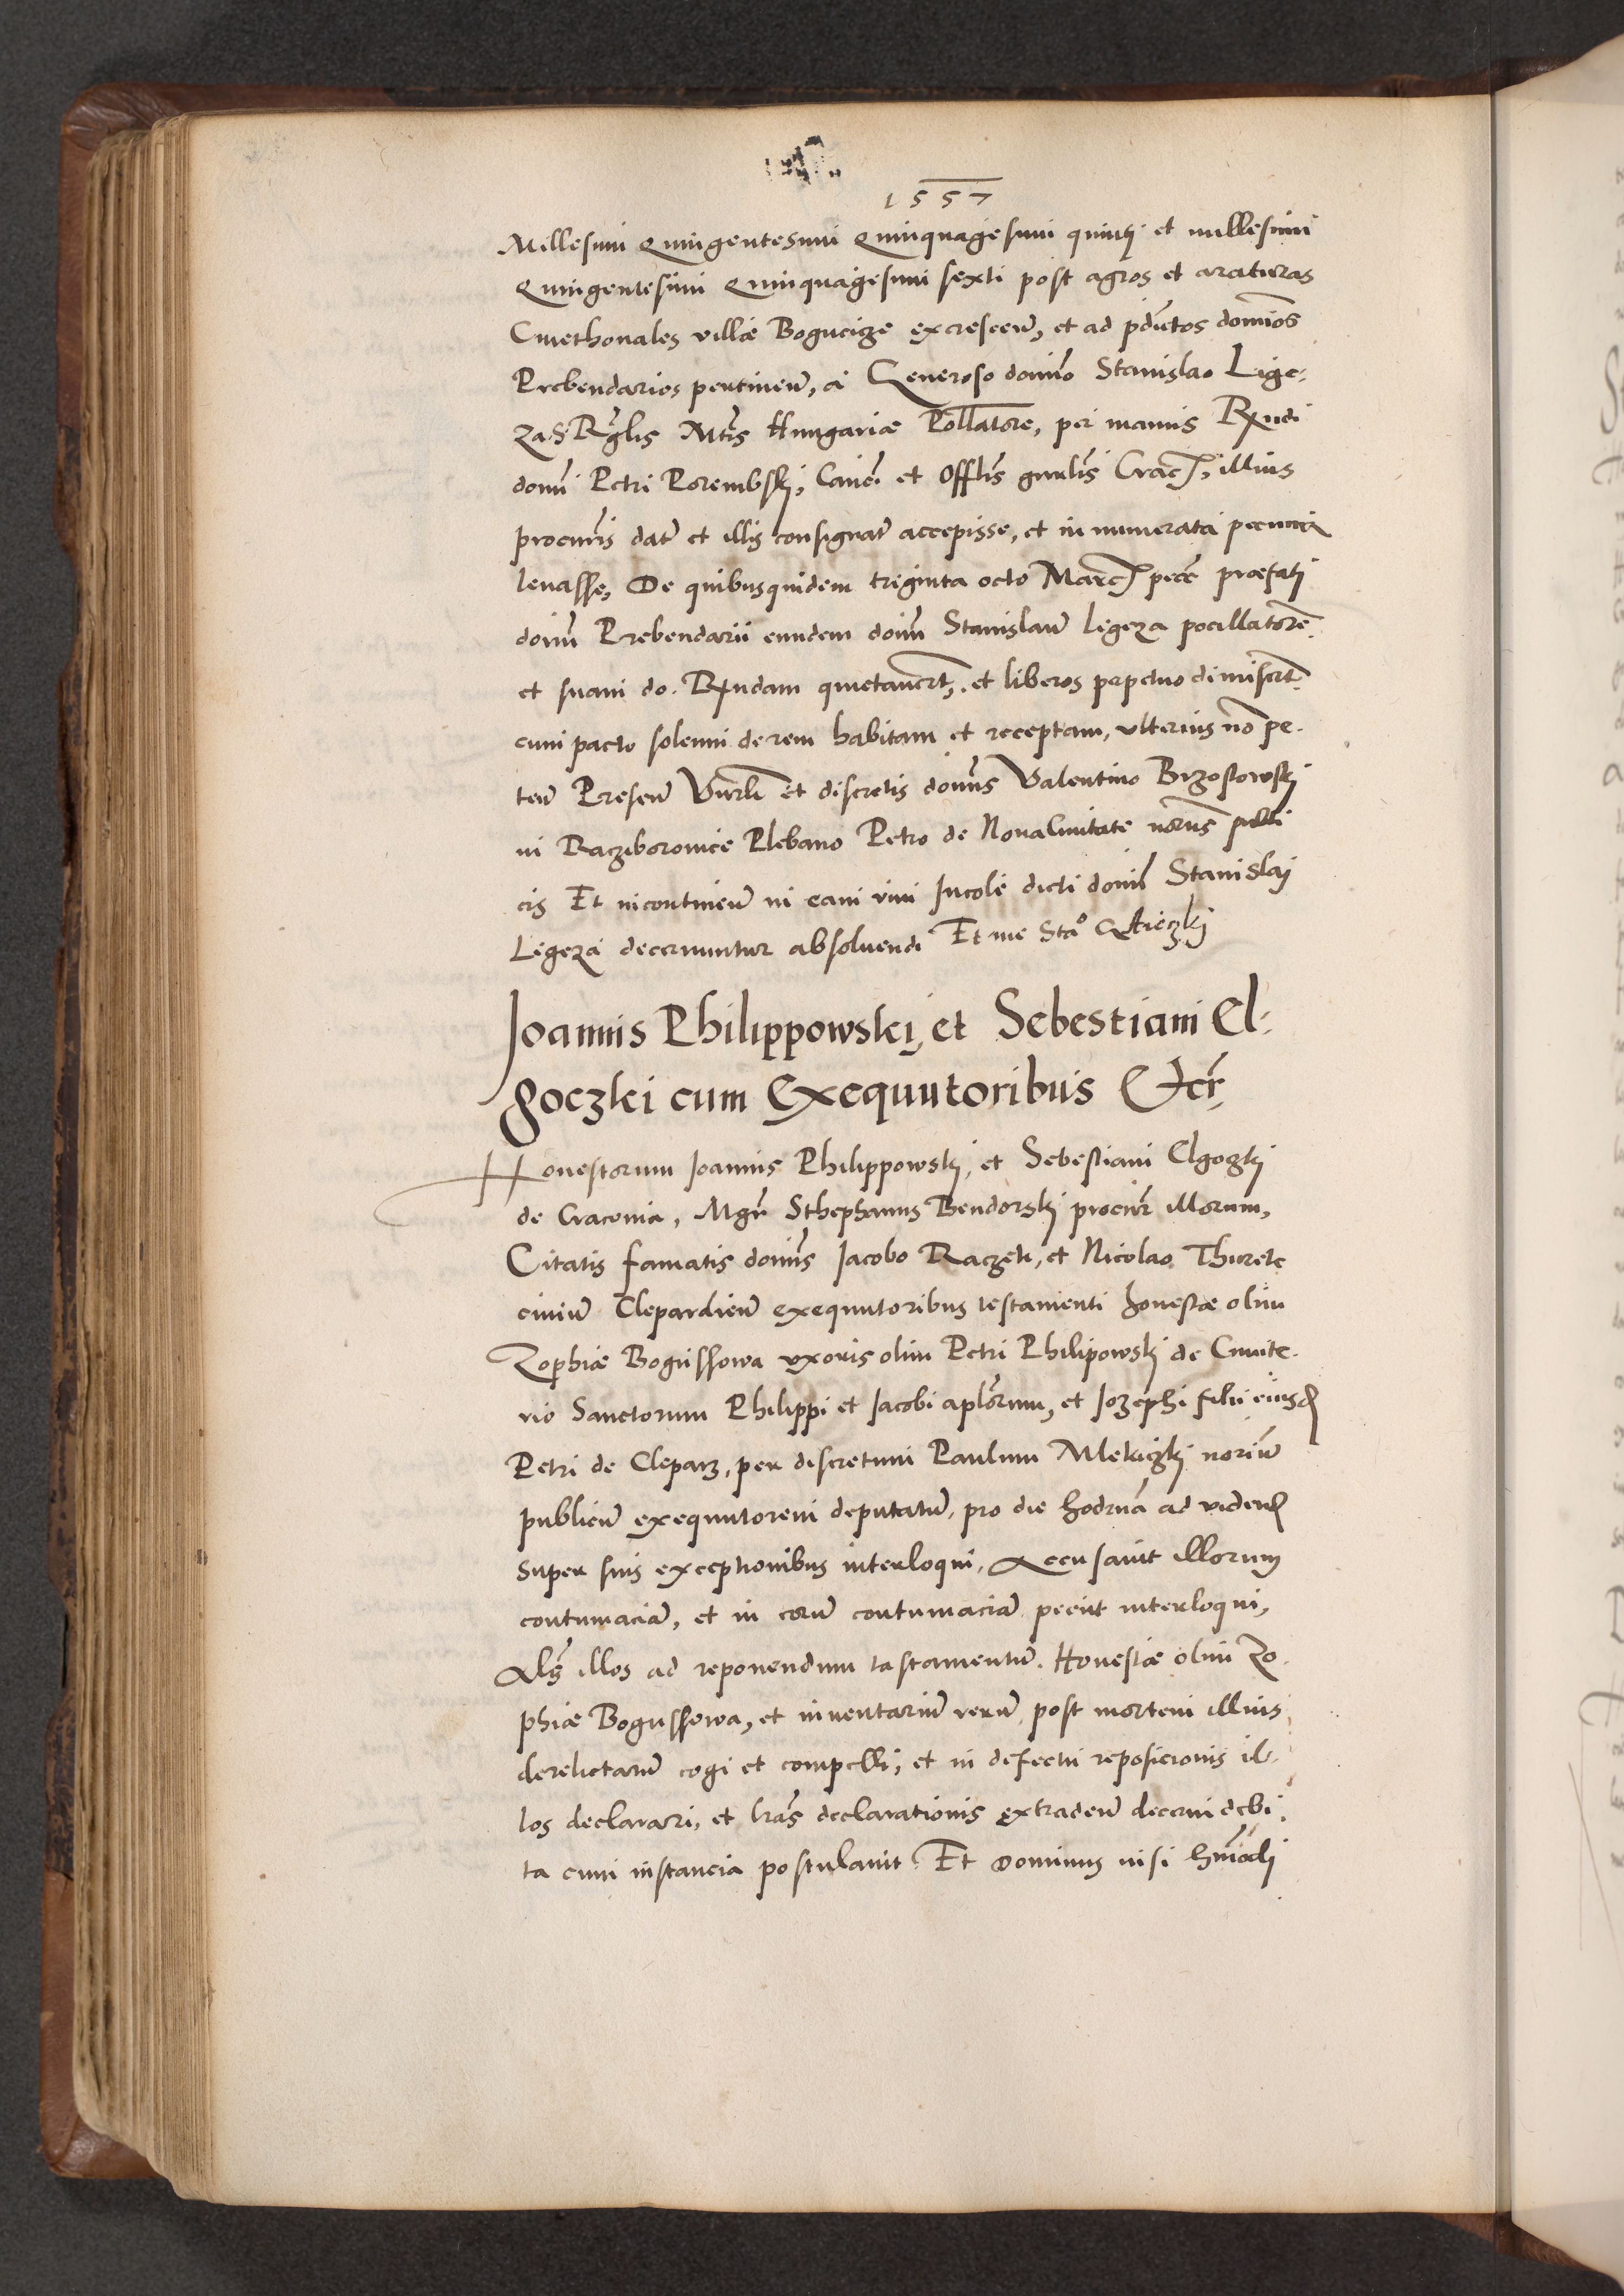 1557
Millesimi Quingentesimi Quinquagesimi quinti et millesimi
Quingentesimi Quinquagesimi sexti post agros et araturas
Cmethonales villæ Bogucicze excrescen̄, et ad pdictos domīos
Prebendarios pertinen̄, a Generoso domīo Stanislao Lige-
za S. Rglis Mtis Hungariæ Pollatore, per manus Rndi
domī Petri Porembskj, Canci et Offlis gnrlis Crac, illius
procuris dat̄ et illis consignat̄ accepisse, et in numerata pecunia
levasse, De quibusquidem triginta octo Marc pec̄ præfatj
domī Prebendarii eundem domī Stanislaū Legeza pocillatorē
et suam do. Rndam quietaverūt, et liberos pepetuo dimiserūt
cum pacto solenni de rem habitam et receptam, ulterius nō pe-
ten̄ Presen̄ Vnrli et discretis domīs Valentino Brzostowskj
in Racziborouice Plebano Petro de Novacivitate noriis publi
cis Et incontinen̄ in eam vim Incolē dicti domī Stanislaj
Legeza decernuntur absolvendi Et me Sta°
Joannis Philippowskj, et Sebestiani El-
goczki cum Exequutoribus
Honestorum Joannis Philippowskj, et Sebestiani Elgoczkj
de Cracovia, Mgr̄ Sthephanus Bendorskj procur̄ illorum,
Citatis famatis domīs Jacobo Raczek, et Nicolao Thurek
civiū Clepardien̄ exequutoribus testamenti honestæ olim
Zophiæ Bogussowa uxoris olim Petri Philipowskj de Cmite-
rio Sanctorum Philippi et Jacobi aplorum, et Jozephi filii eiusd
Petri de Cleparz, per discretum Paulum Mlekiczkj noriū
publicū exequutorem deputatū, pro die hodrna ad videnđ
super suis exceptionibus interloqui, Accusavit illorum
contumaciā, et in eorū contumaciā peciit interloqui,
Als illos ad reponendum tastamentū Honestæ olim Zo-
phiæ Bogussowa, et inventariū rerū post mortem illius
derelictarū cogi et compelli, et in defectu reposicionis il-
los declarari, et lras declarationis extraden̄ decerni debi-
ta cum instancia postulavit Et Dominus nisi hmōdi